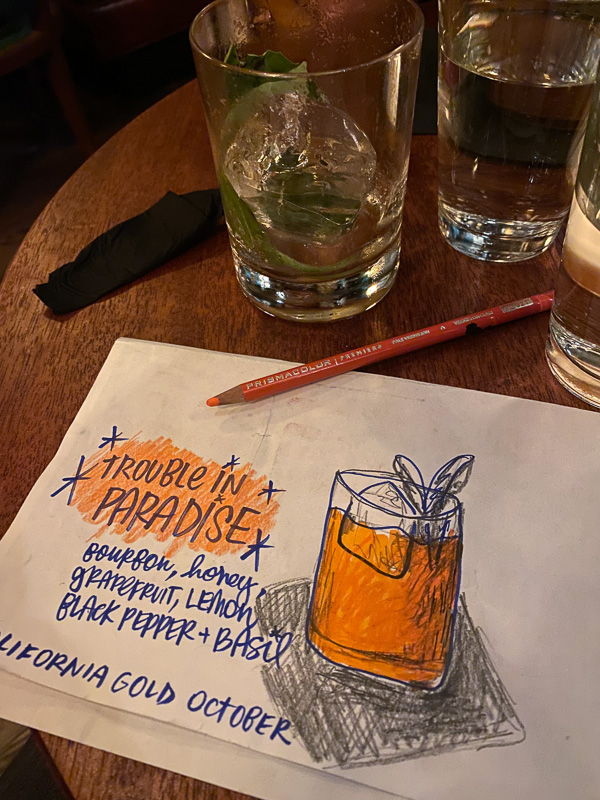 PRISMACOLOR | PREMIER
TROUBLE IN
PARADISE
bourbon, honey,
GRAPEFRUIT, LEMON,
BLACK PEPPER + BASIL
CALIFORNIA GOLD OCTOBER